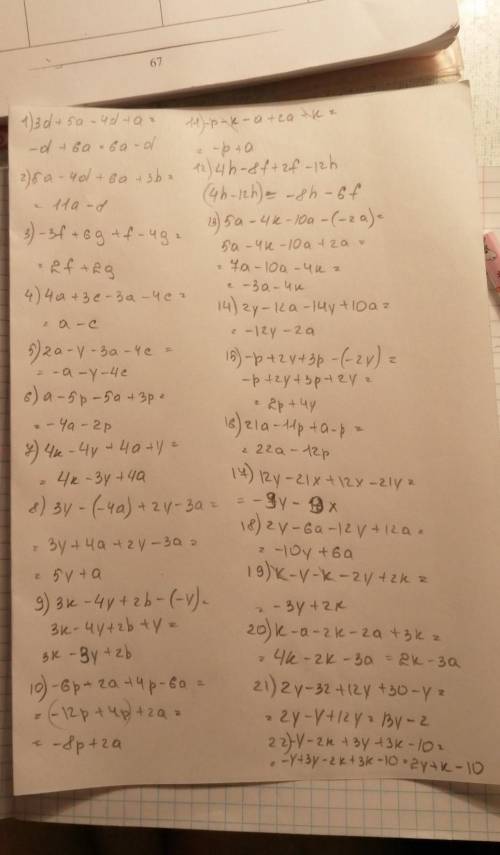 67
1) 3d + 5a - 4d + a =
- d + 6a = 6a - d
2) 5a - 4d + 6a + 3b =
= 11a - 8
3) -3f + 6g + f - 4g =
= 2f + 2g
4) 4a + 3c - 3a - 4c =
= a - c
5) 2a - y - 3a - 4c =
= -a - y - 4c
6) a - 5p - 5a + 3p =
= -4a - 2p
7) 4k - 4y + 4a + y =
= 4k - 3y + 4a
8) 3y - (-4a) + 2y - 3a =
= 3y + 4a + 2y - 3a =
= 5y + a
9) 3k - 4y + 2b - (-y) =
3k - 4y + 2b + y =
3k - 3y + 2b
10) -6p + 2a + 4p - 6a =
= (-12p + 4p) + 2a =
= -8p + 2a
11) -p - k - a + 2a + k =
= -p + a
12) 4h - 8f + 2f - 12h
(4h - 12h) = -8h - 6f
13) 5a - 4k - 10a - (-2a) =
5a - 4k - 10a + 2a =
= 7a - 10a - 4k =
= -3a - 4k
14) 2y - 12a - 14y + 10a =
= -12y - 2a
15) -p + 2y + 3p - (-2y) =
-p + 2y + 3p + 2y =
= 2p + 4y
16) 21a - 11p + a - p =
= 22a - 12p
17) 12y - 21x + 12x - 21y =
= -9y - 9x
18) 2y - 6a - 12y + 12a =
= -10y + 6a
19) k - y - k - 2y + 2k =
= -3y + 2k
20) k - a - 2k - 2a + 3k =
= 4k - 2k - 3a = 2k - 3a
21) 2y - 32 + 12y + 30 - y =
= 2y - y + 12y = 13y - 2
22) -y - 2k + 3y + 3k - 10 =
= -y + 3y - 2k + 3k - 10 = 2y + k - 10